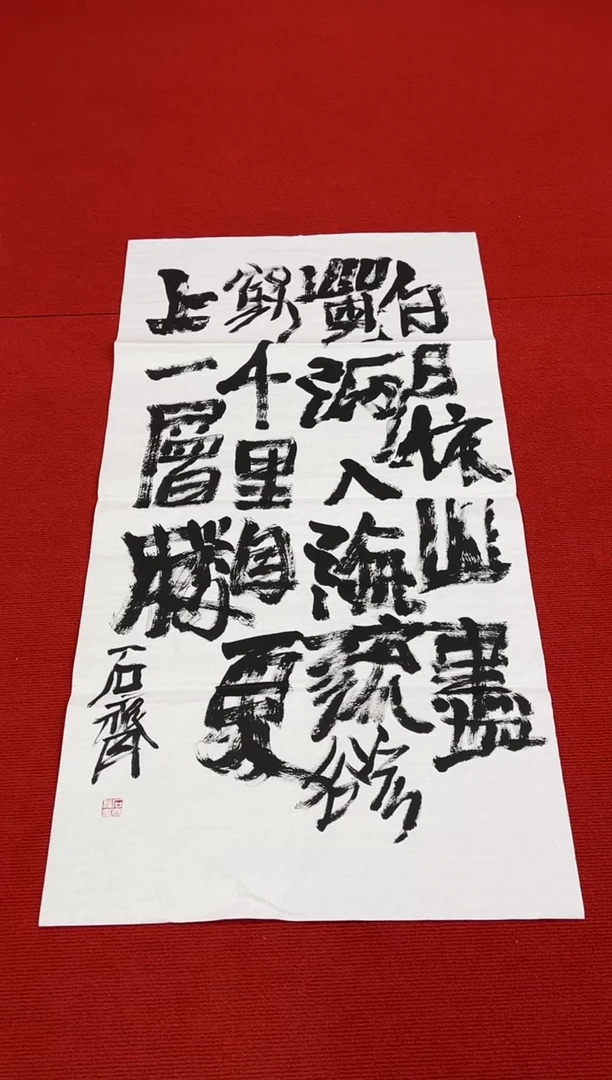 白日依山盡
黃河入海流欲
窮千里目更
上一層勝
石齊